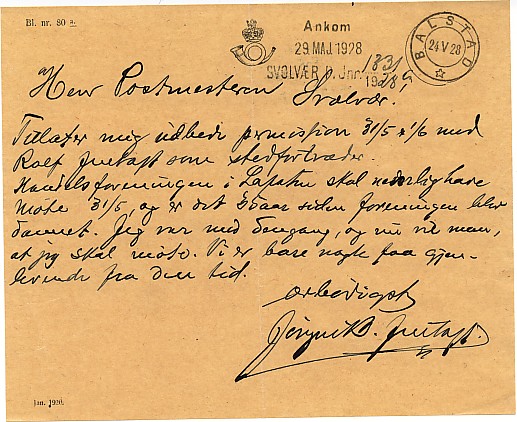 Bl. nr. 80 a.
Ankom
29. MAJ. 1928
SVOLVÆR P. Jnr.
BALSTAD
24 V 28
Herr Postmesteren Svolvær.
Tillater mig udbede permission 31/5 & 1/6 med
Rolf Justaft som stedfortræder.
Handelsforeningen i Lofoten skal nemlig have
møte 31/5, og er det 35 aar siden foreningen blev
dannet. Jeg var med dengang, og nu vil man,
at jeg skal møte. Vi er bare nogle faa gjen-
levende fra den tid.
ærbødigst
Jan. 1920.